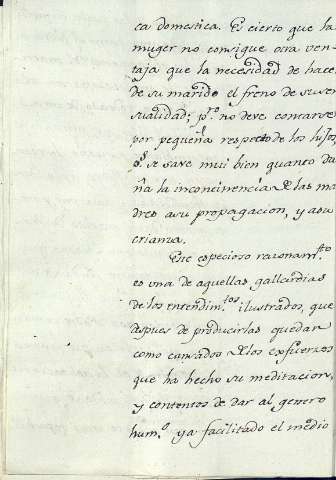 ca domestica. Es cierto que la
muger no consigue otra ven-
taja que la necesidad de hacer
de su marido el freno de su sen
sualidad; p.ro no deve contarse
por pequeña respecto de los hijos,
p.s se save mui bien quanto da
ña la incontinencia de las ma
dres a su propagacion, y a su
crianza.
Este especioso razonam.to
es una de aquellas gallardias
de los entendim.tos ilustrados, que
despues de producirlas quedan
como cansados de los esfuerzos
que ha hecho su meditacion,
y contentos de dar al genero
hum.o ya facilitado el medio